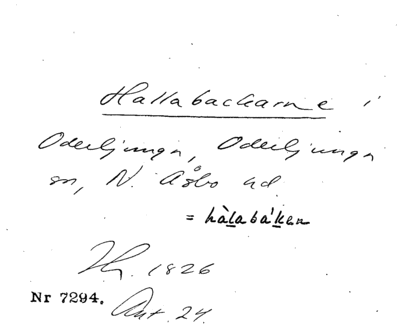 Hallabackarne i
Oderljunga, Oderljunga
sn, N. Åsbo hd.
= hàlabáken
Th. 1826
Nr 7294. Ant. 24.